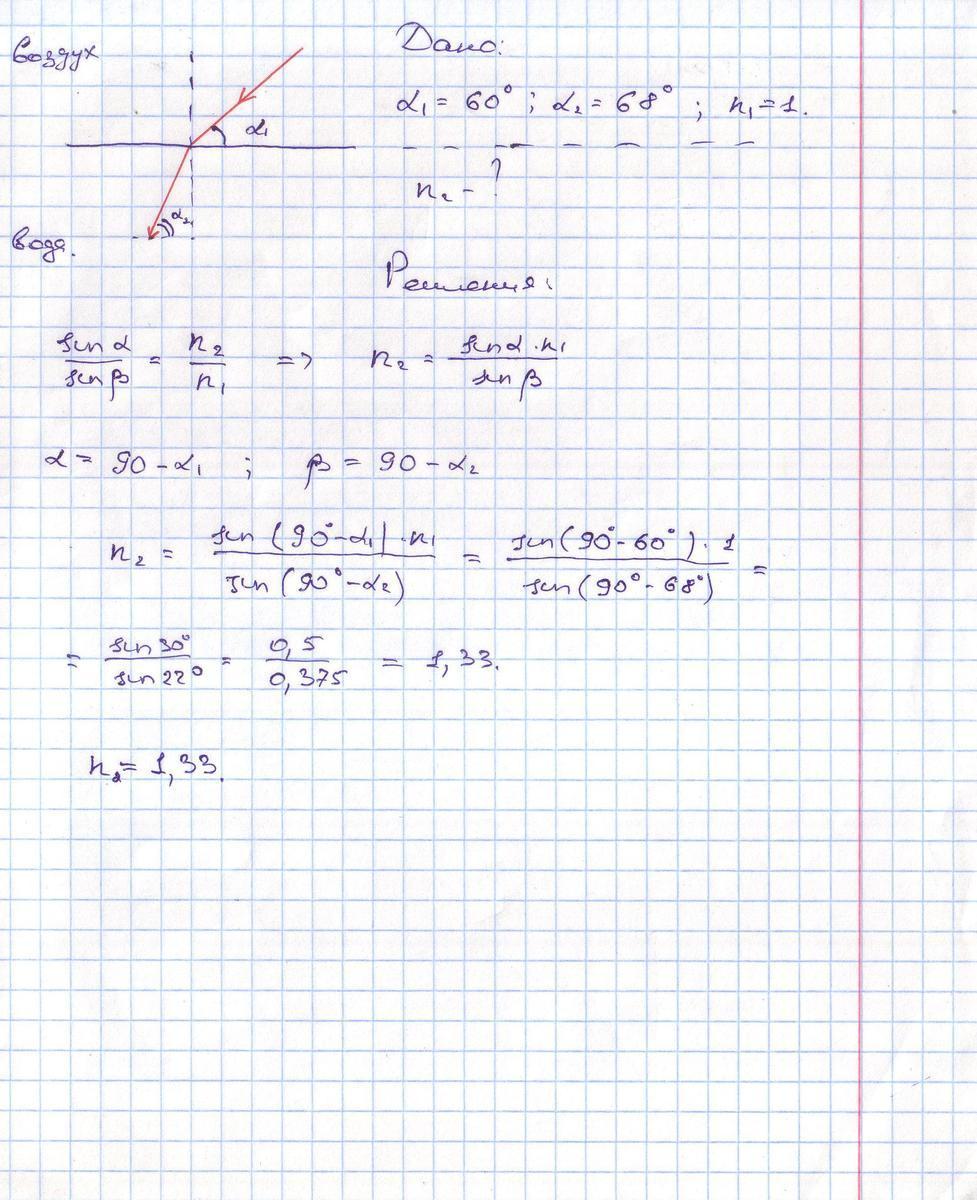 Воздух
Дано:
α₁
α₁ = 60° ; α₂ = 68° ; n₁ = 1.
n₂ - ?
α₂
вода.
Решения:
sin α / sin β = n₂ / n₁ => n₂ = sin α · n₁ / sin β
α = 90 - α₁ ; β = 90 - α₂
n₂ = sin (90° - α₁) · n₁ / sin (90° - α₂) = sin (90° - 60°) · 1 / sin (90° - 68°) =
= sin 30° / sin 22° = 0,5 / 0,375 = 1,33.
n₂ = 1,33.